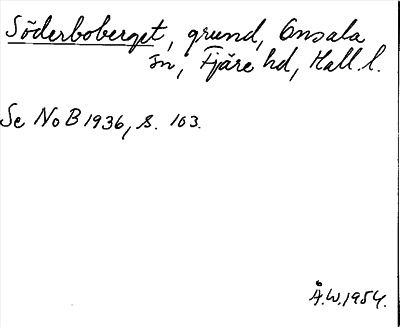 Söderboberget, grund, Onsala
sn, Fjäre hd, Hall. l.
Se NoB 1936, s. 103.
Å.W. 1954.